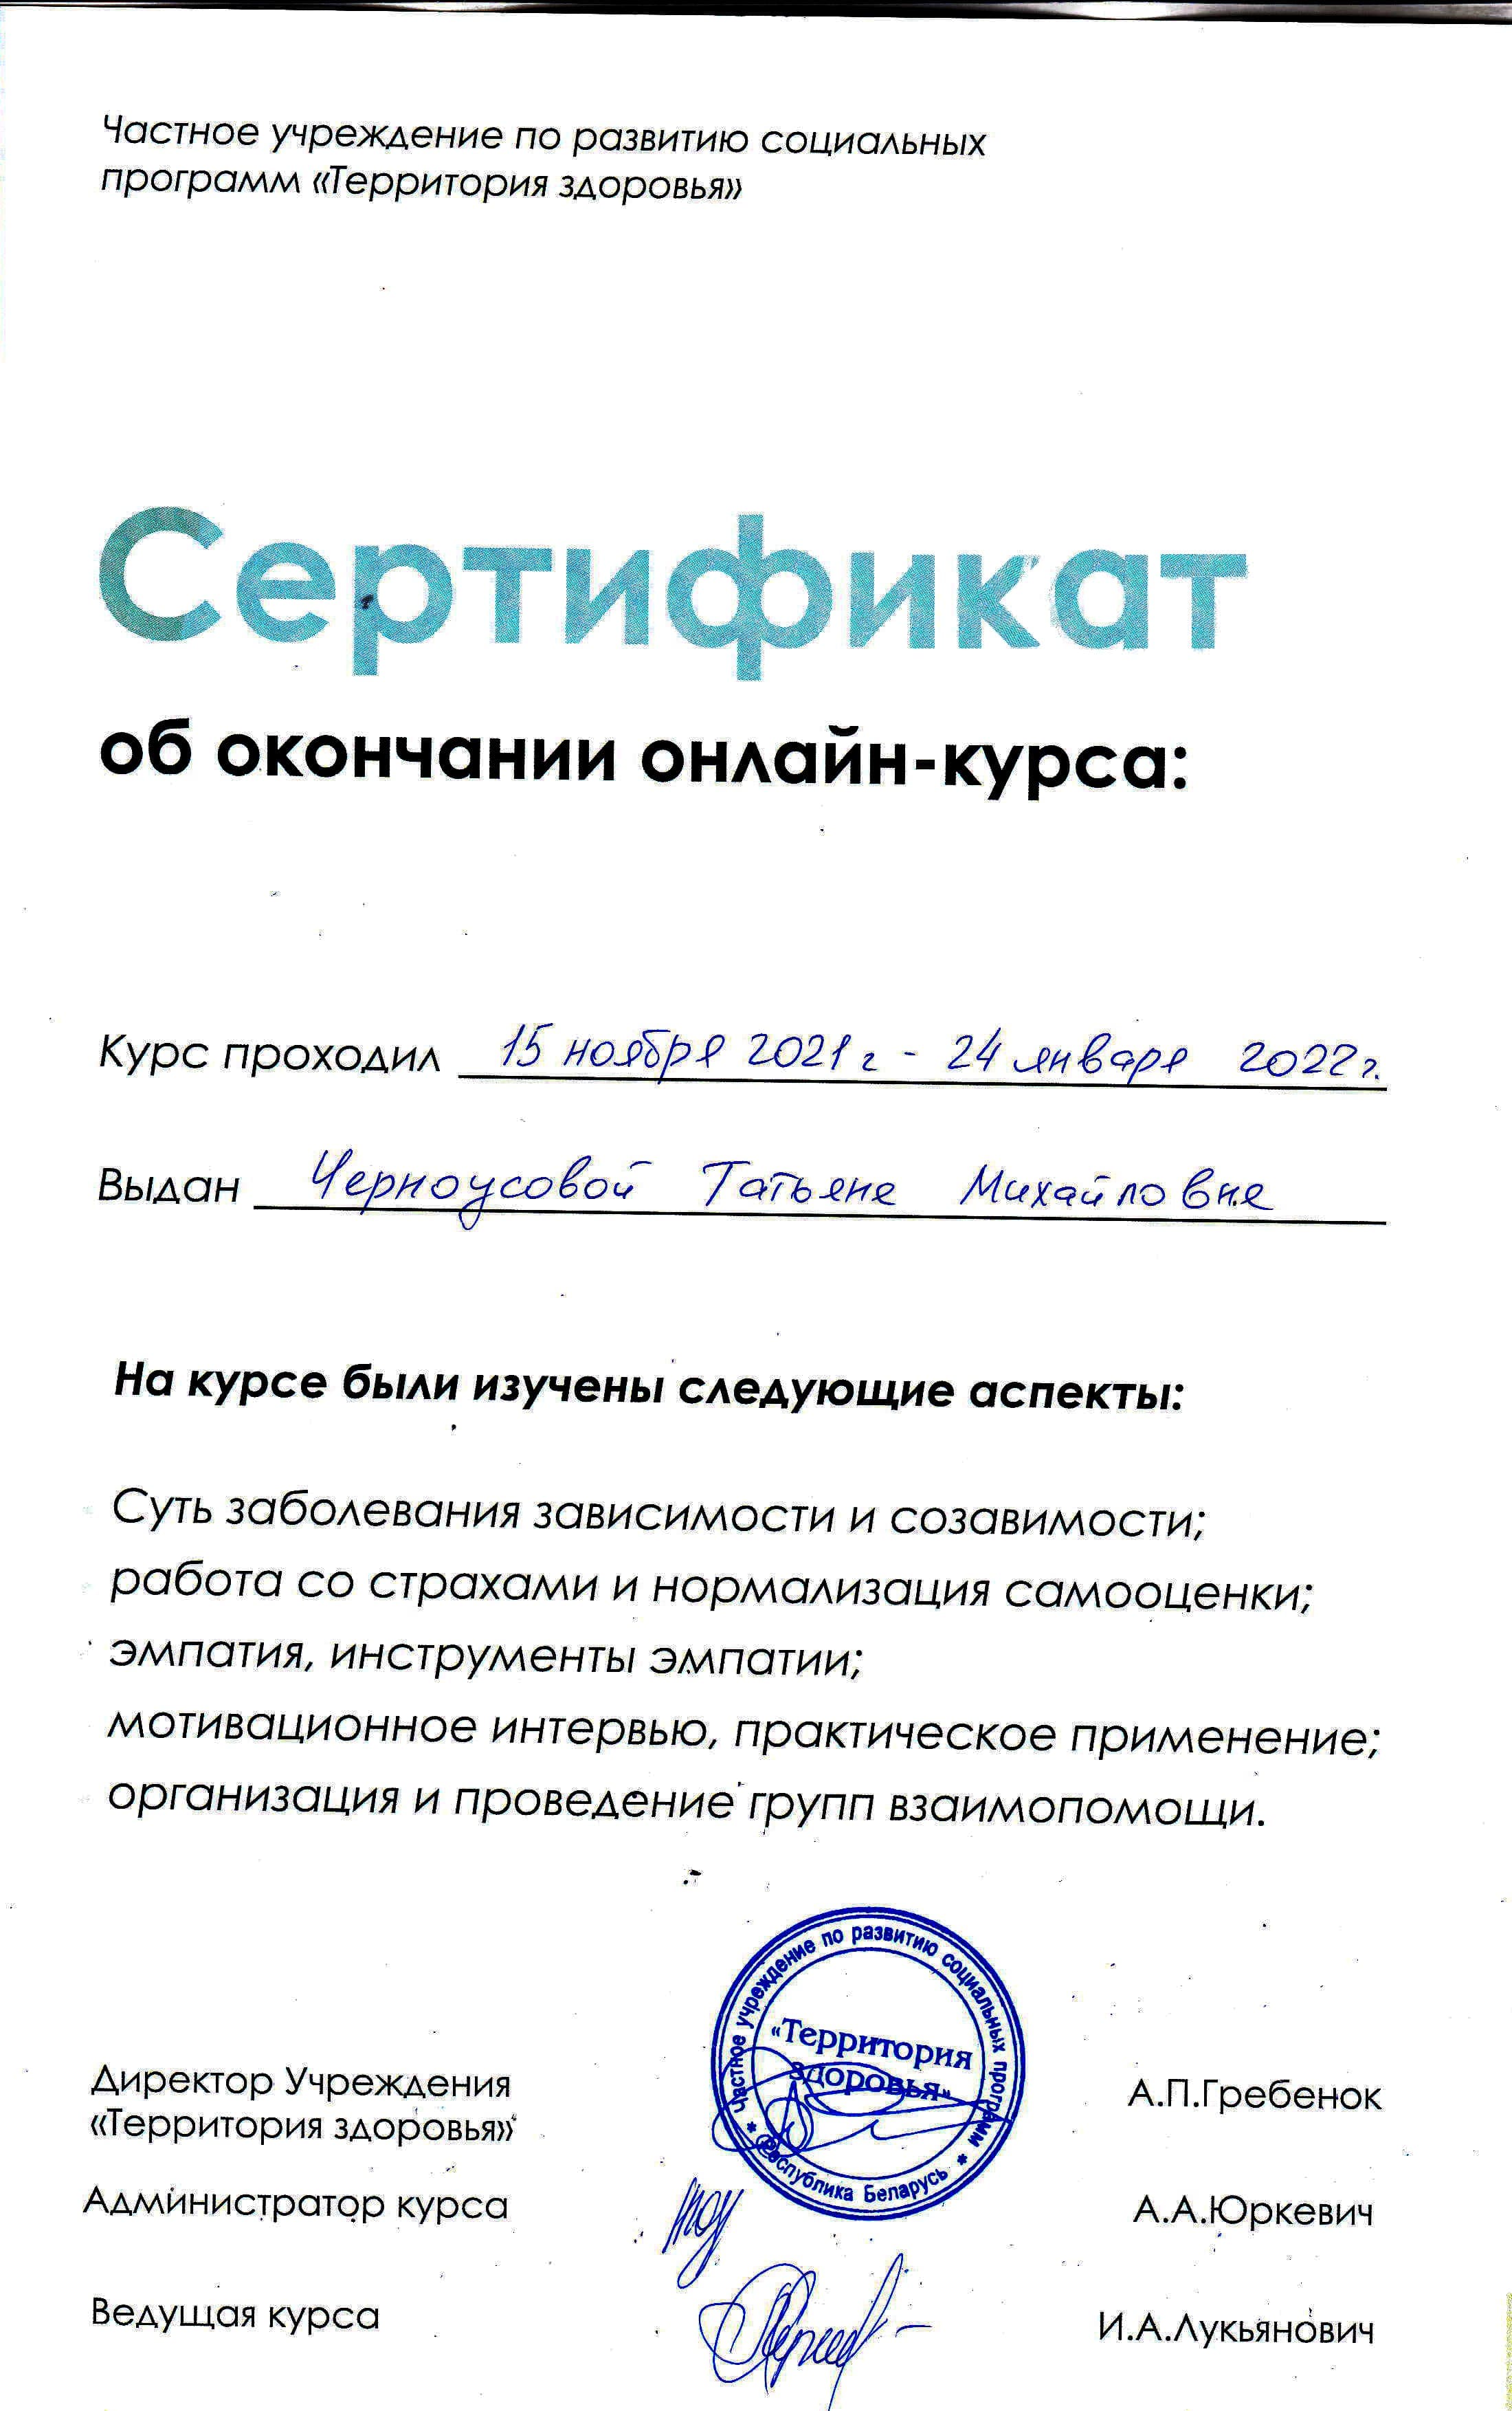 Частное учреждение по развитию социальных
программ «Территория здоровья»
Сертификат
об окончании онлайн-курса:
Курс проходил 15 ноября 2021 г - 24 января 2022 г.
Выдан Черноусовой Татьяне Михайловне
На курсе были изучены следующие аспекты:
Суть заболевания зависимости и созавимости;
работа со страхами и нормализация самооценки;
эмпатия, инструменты эмпатии;
мотивационное интервью, практическое применение;
организация и проведение групп взаимопомощи.
Частное учреждение по развитию социальных программ
* Республика Беларусь *
«Территория
здоровья»
Директор Учреждения
«Территория здоровья»
А.П.Гребенок
Администратор курса А.А.Юркевич
Ведущая курса И.А.Лукьянович